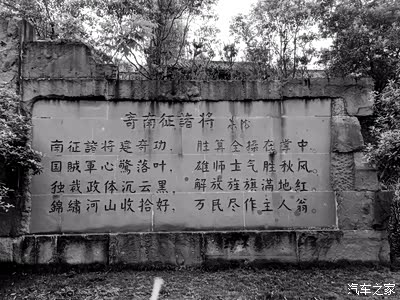 寄南征諸將 朱德
南征諸將建奇功，胜算全操在掌中。
国賊軍心驚落叶，雄师士气胜秋风。
独裁政体沉云黑，解放旌旗满地红。
錦繡河山收拾好，万民尽作主人翁。
汽车之家